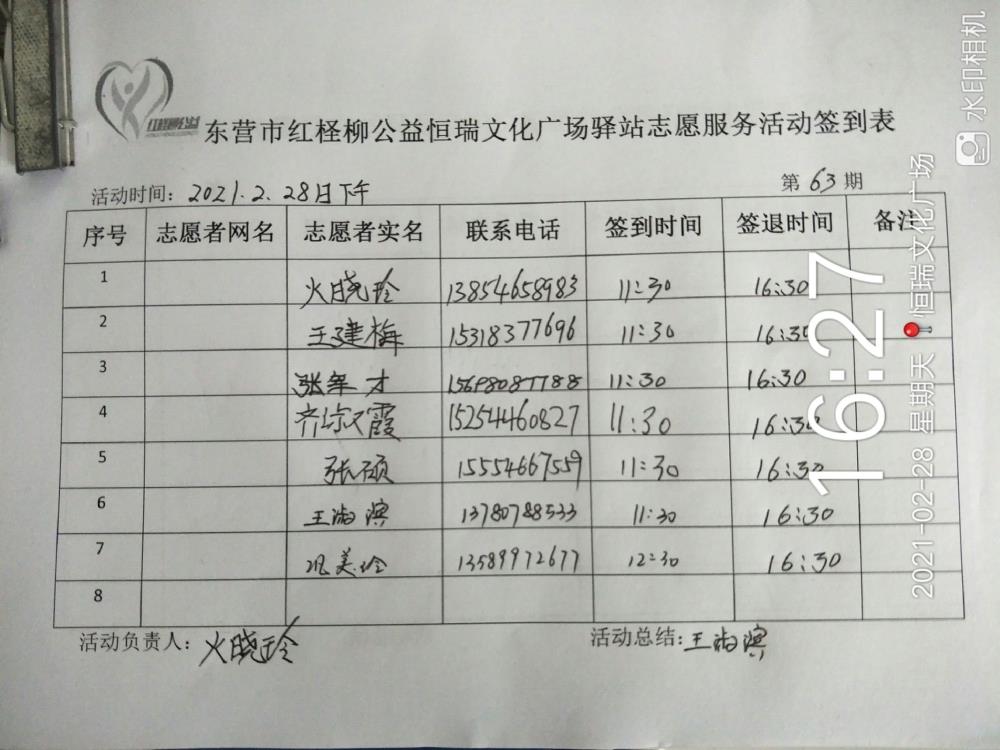 红柽柳公益
东营市红柽柳公益恒瑞文化广场驿站志愿服务活动签到表
活动时间：2021.2.28日下午
第63期
序号 志愿者网名 志愿者实名 联系电话 签到时间 签退时间 备注
1 火晓玲 13854658983 11:30 16:30
2 王建梅 15318377696 11:30 16:30
3 张军才 11:30 16:30
4 齐 霞 15254460827 11:30 16:30
5 张硕 15554667559 11:30 16:30
6 王海滨 13780788533 11:30 16:30
7 美玲 13589972677 12:30 16:30
8
活动负责人：火晓玲
活动总结：王海滨
水印相机
16:27
恒瑞文化广场
2021-02-28 星期天